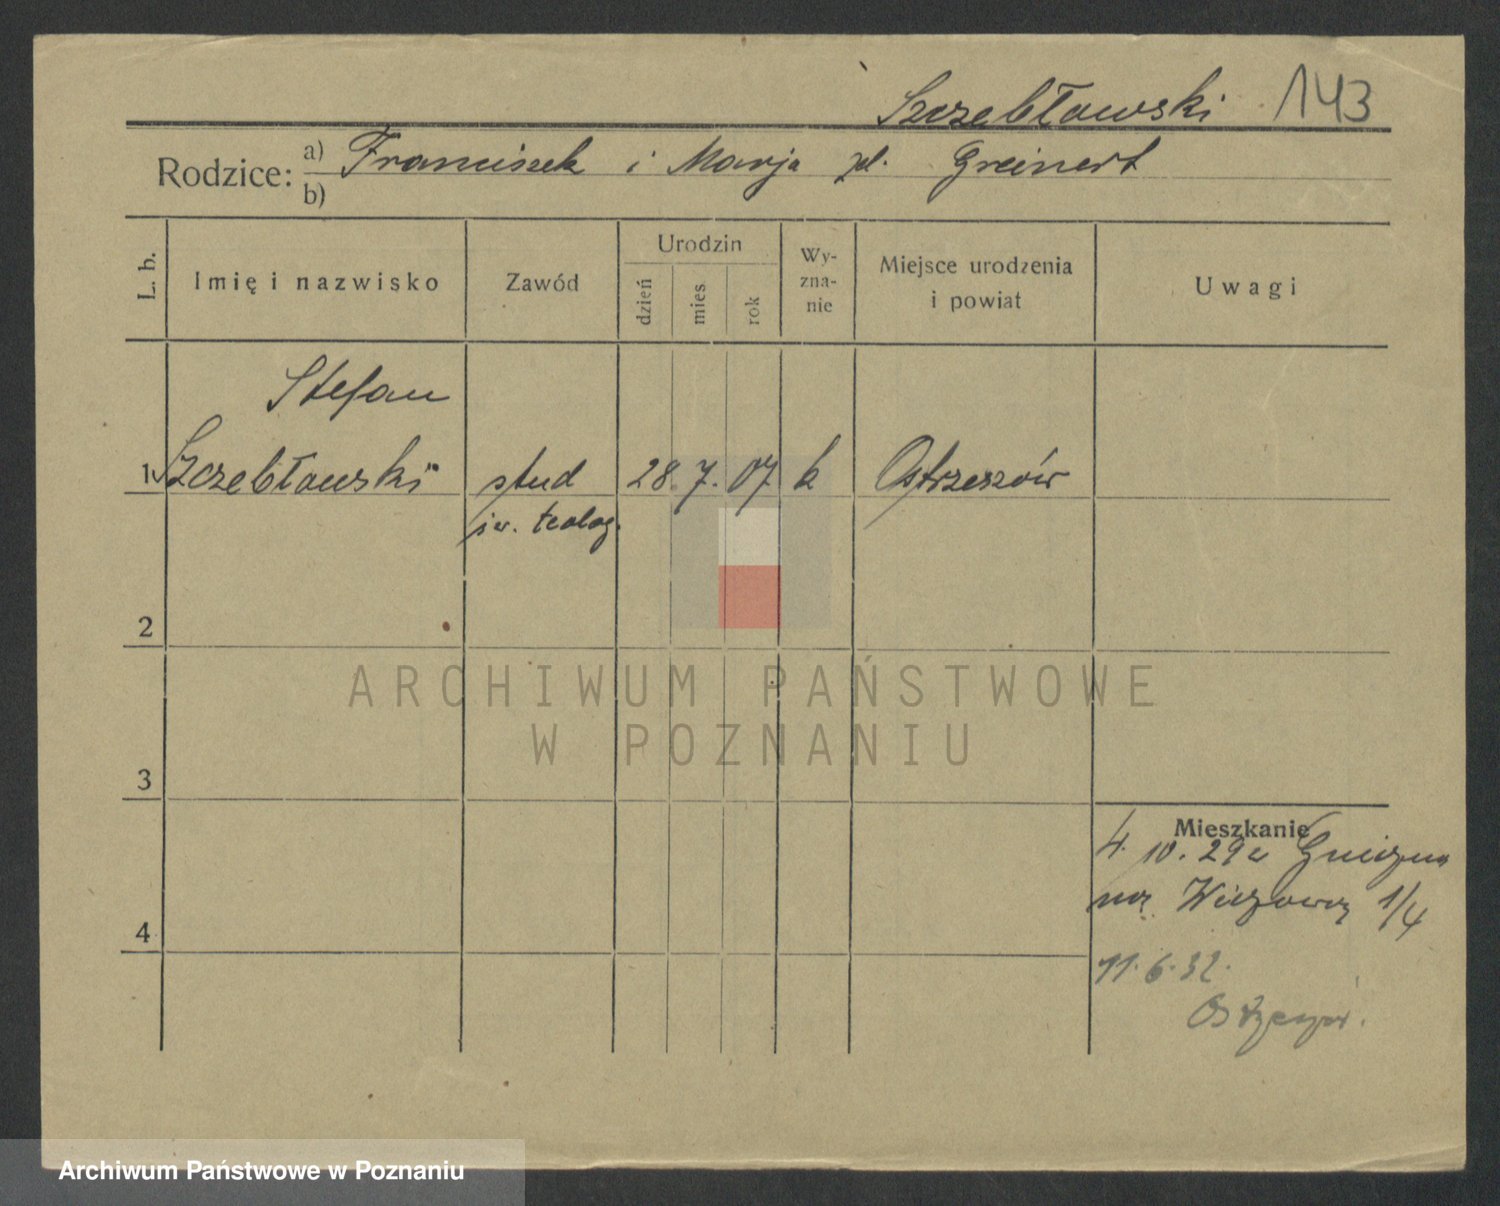 Szczebławski 143
Rodzice: a) Franciszek i Marja zd. Greinert
b)
L. b.
Imię i nazwisko
Zawód
Urodzin
dzień
mies
rok
Wy-
zna-
nie
Miejsce urodzenia
i powiat
Uwagi
Stefan
1 Szczebławski stud 28. 7. 07 k Ostrzeszów
św. teolog.
2
ARCHIWUM PAŃSTWOWE
W POZNANIU
3
Mieszkanie
4. 10. 29 z Gniezna
1/4
4
11. 6. 32.
Archiwum Państwowe w Poznaniu